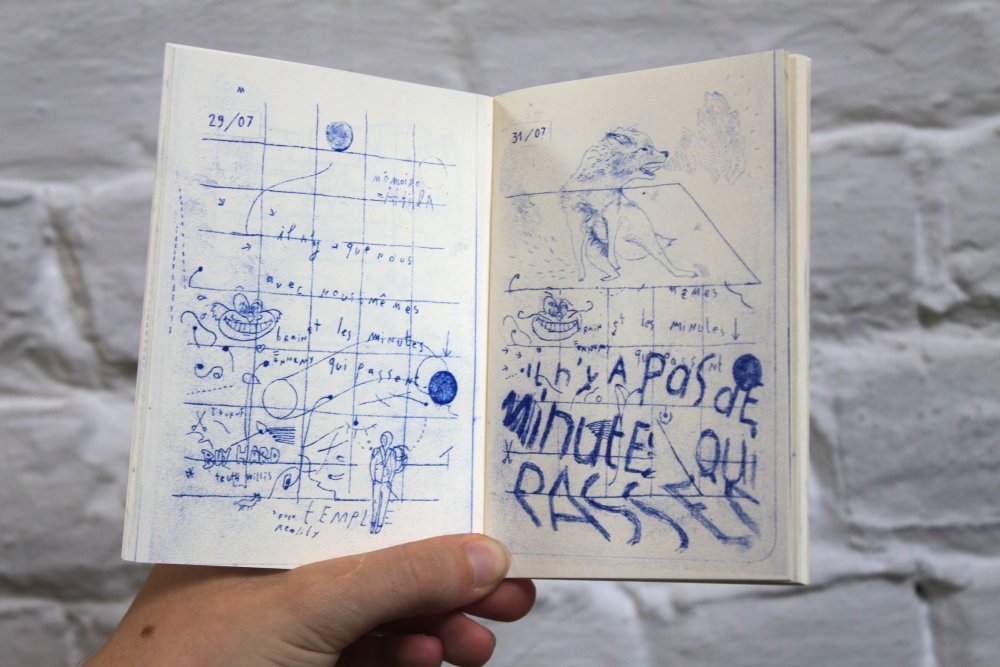 M
29/07
mémoire
il n'y a que nous
avec nous-mêmes
brain et les minutes
ENNEMY qui passent
STUPID
BUY HARD
truth willis
TEMPLE
reality
31/07
mêmes
BRAIN Et les MINUTES
ENNEMY
IL N'Y A PAS DE
MINUTES QUI
PASSENT